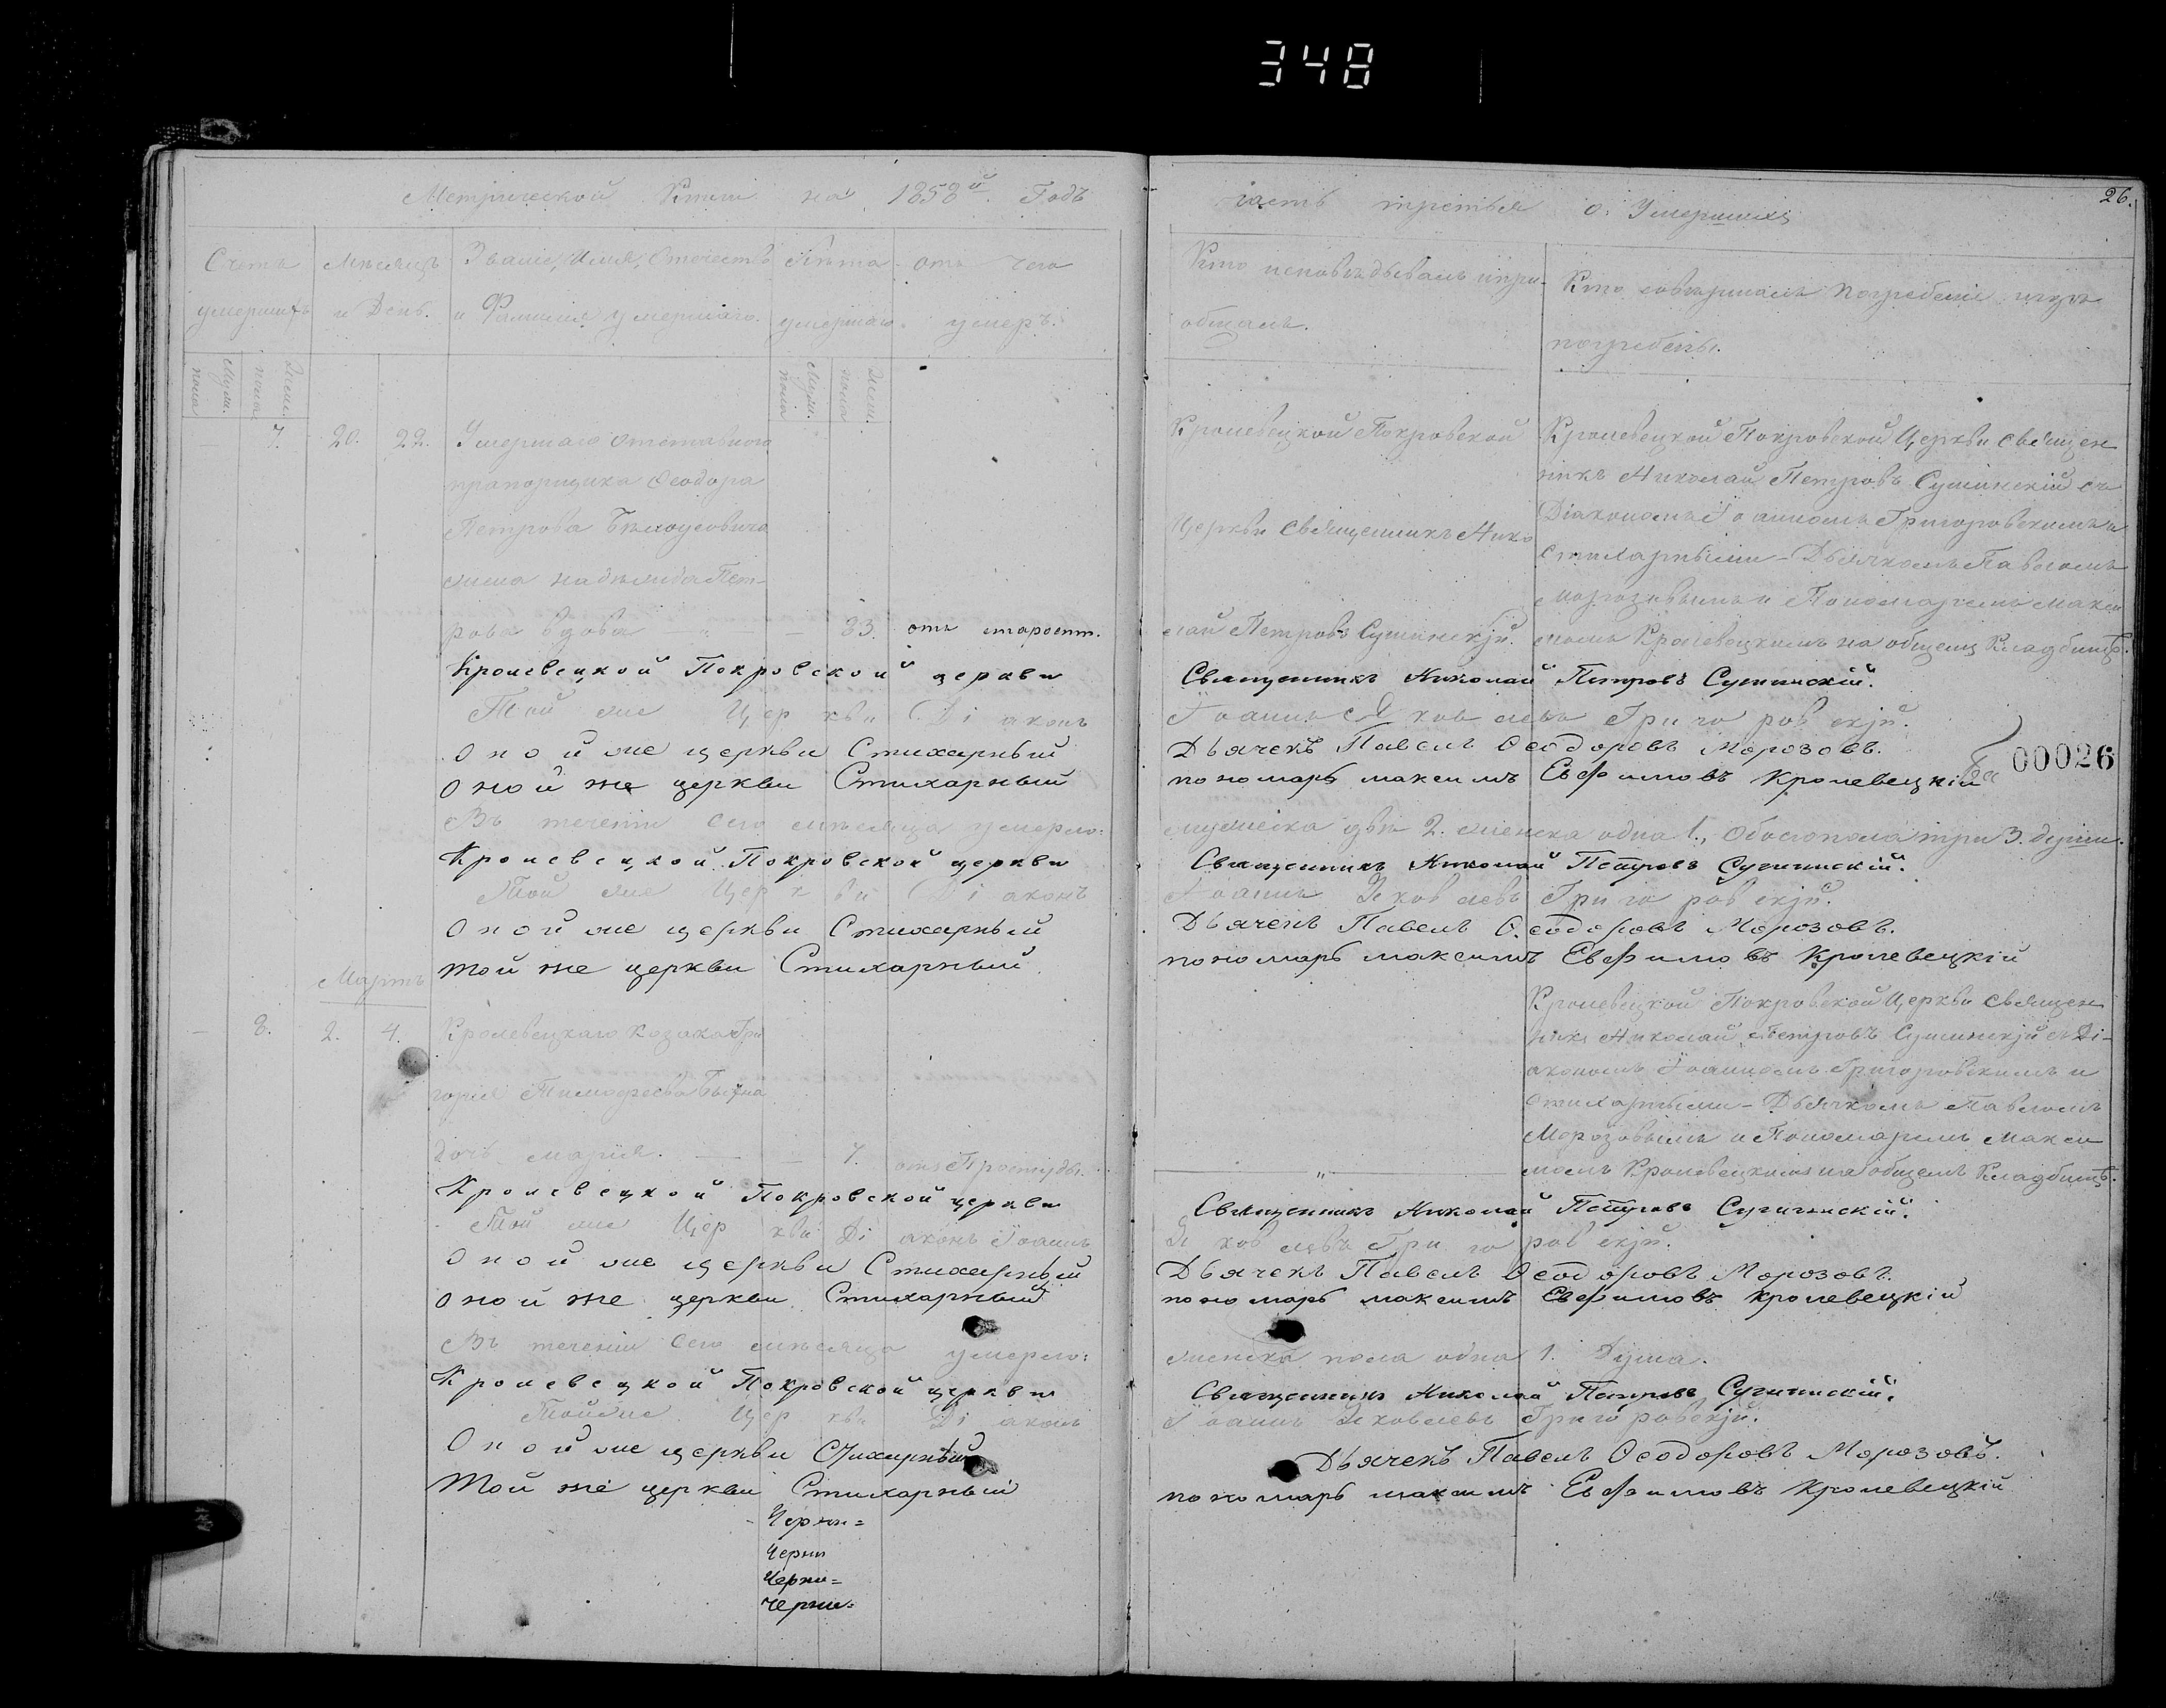 348
26.
Метрической Книги на 1858й. Годъ
часть третья о. Умершихъ
Счетъ умершихъ
Мѣсяцъ и День.
Званіе, Имя, Отчество и Фамилія умершаго.
Лѣта умершаго.
отъ чего умеръ.
Кто исповѣдывалъ и прі-
общалъ.
Кто совершалъ погребеніе и гдѣ
погребены.
Муж. пола
Жен. пола
Муж. пола
Жен. пола
— 7. 20. 22. Умершаго отставного
прапорщика Ѳеодора
Петрова Бѣлоусовича
жена Надежда Пет-
рова вдова — — 83. отъ старост.
Кролевецкой Покровской
Церкви Священникъ Нико
лай Петровъ Сушинскій.
Кролевецкой Покровской Церкви священ
никъ Николай Петровъ Сушинскій съ
Діакономъ Іоанномъ Григоровскимъ и
стихарными – Дьячкомъ Павломъ
Морозовымъ и Пономаремъ Макси
момъ Кролевецкимъ на общемъ Кладбищѣ.
Кролевецкой Покровской церкви Священникъ Николай Петровъ Сушинскій.
Той же Церкви Діаконъ Іоаннъ Яковлевъ Григоровскій.
Оной же церкви Стихарный Дьячекъ Павелъ Ѳеодоровъ Морозовъ.
Оной же церкви Стихарный пономарь Максимъ Евфимовъ Кролевецкій
00026
Въ теченіи сего мѣсяца умерло: мужеска два 2. женска одна 1., Обоего пола три 3. души.
Кролевецкой Покровской церкви Священникъ Николай Петровъ Сушинскій.
Той же Церкви Діаконъ Іоаннъ Яковлевъ Григоровскій.
Оной же церкви Стихарный Дьячекъ Павелъ Ѳеодоровъ Морозовъ.
Той же церкви Стихарный пономарь Максимъ Евфимовъ Кролевецкій
Мартъ
— 8. 2. 4. Кролевецкаго козака Гри
горія Тимофеева
дочь Марія. — — 7. отъ Простуды.
— „ —
Кролевецкой Покровской Церкви священ
никъ Николай Петровъ Сушинскій съ Ді-
акономъ Іоанномъ Григоровскимъ и
стихарными – Дьячкомъ Павломъ
Морозовымъ и Пономаремъ Макси
момъ Кролевецкимъ на общемъ Кладбищѣ.
Кролевецкой Покровской церкви Священникъ Николай Петровъ Сушинскій.
Той же Церкви Діаконъ Іоаннъ Яковлевъ Григоровскій.
Оной же церкви Стихарный Дьячекъ Павелъ Ѳеодоровъ Морозовъ.
Оной же церкви Стихарный пономарь Максимъ Евфимовъ Кролевецкій
Въ теченіи сего мѣсяца умерло: женска пола одна 1. Душа.
Кролевецкой Покровской церкви Священникъ Николай Петровъ Сушинскій.
Той же Церкви Діаконъ Іоаннъ Яковлевъ Григоровскій.
Оной же церкви Стихарный Дьячекъ Павелъ Ѳеодоровъ Морозовъ.
Той же церкви Стихарный пономарь Максимъ Евфимовъ Кролевецкій
Черни=
Черни
Черни=
Черни=